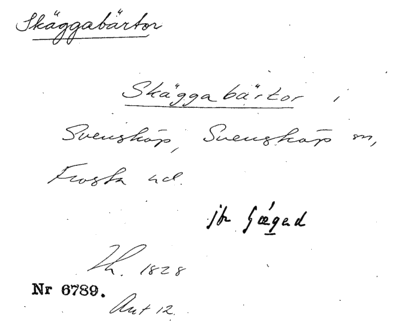 Skäggabärtor
Skäggabärtor i
Svensköp, Svensköp sn,
Frosta hd.
jfr Gægad
Lh. 1828
Nr 6789.
Ant 12